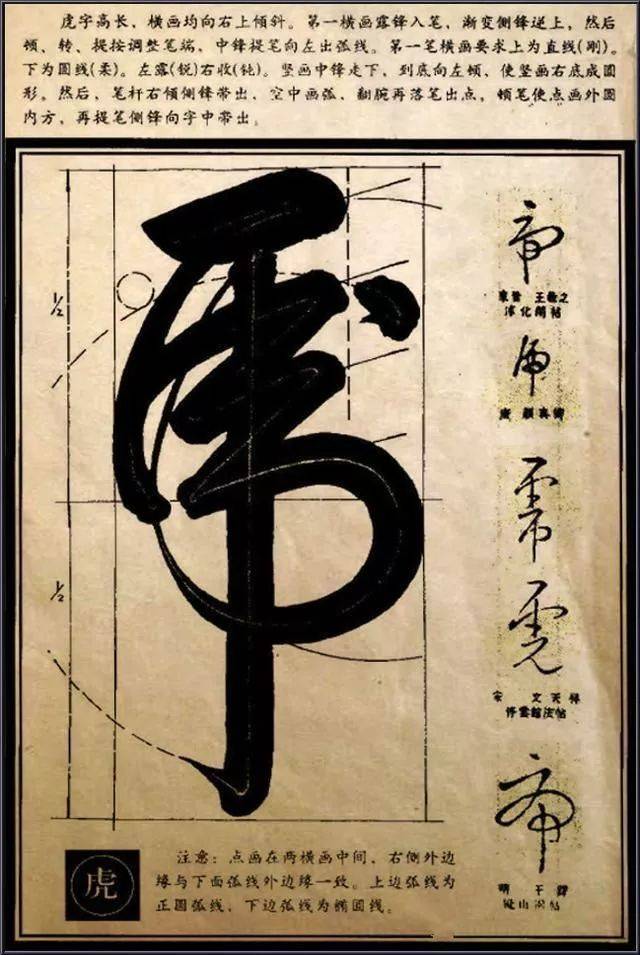 虎字高长、横画均向右上倾斜。第一横画露锋入笔，渐变侧锋逆上，然后
顿、转、提按调整笔端，中锋提笔向左出弧线。第一笔横画要求上为直线(刚)。
下为圆线(柔)。左露(锐)右收(钝)。竖画中锋走下，到底向左顿，使竖画右底成圆
形。然后、笔杆右倾侧锋带出、空中画弧、翻腕再落笔出点，顿笔使点画外圆
内方，再提笔侧锋向字中带出。
½
½
虎
東晉 王羲之
淳化閣帖
唐 顏真卿
宋 文天祥
停雲館法帖
虎
注意：点画在两横画中间，右侧外边
缘与下面弧线外边缘一致。上边弧线为
正圆弧线，下边弧线为椭圆线。